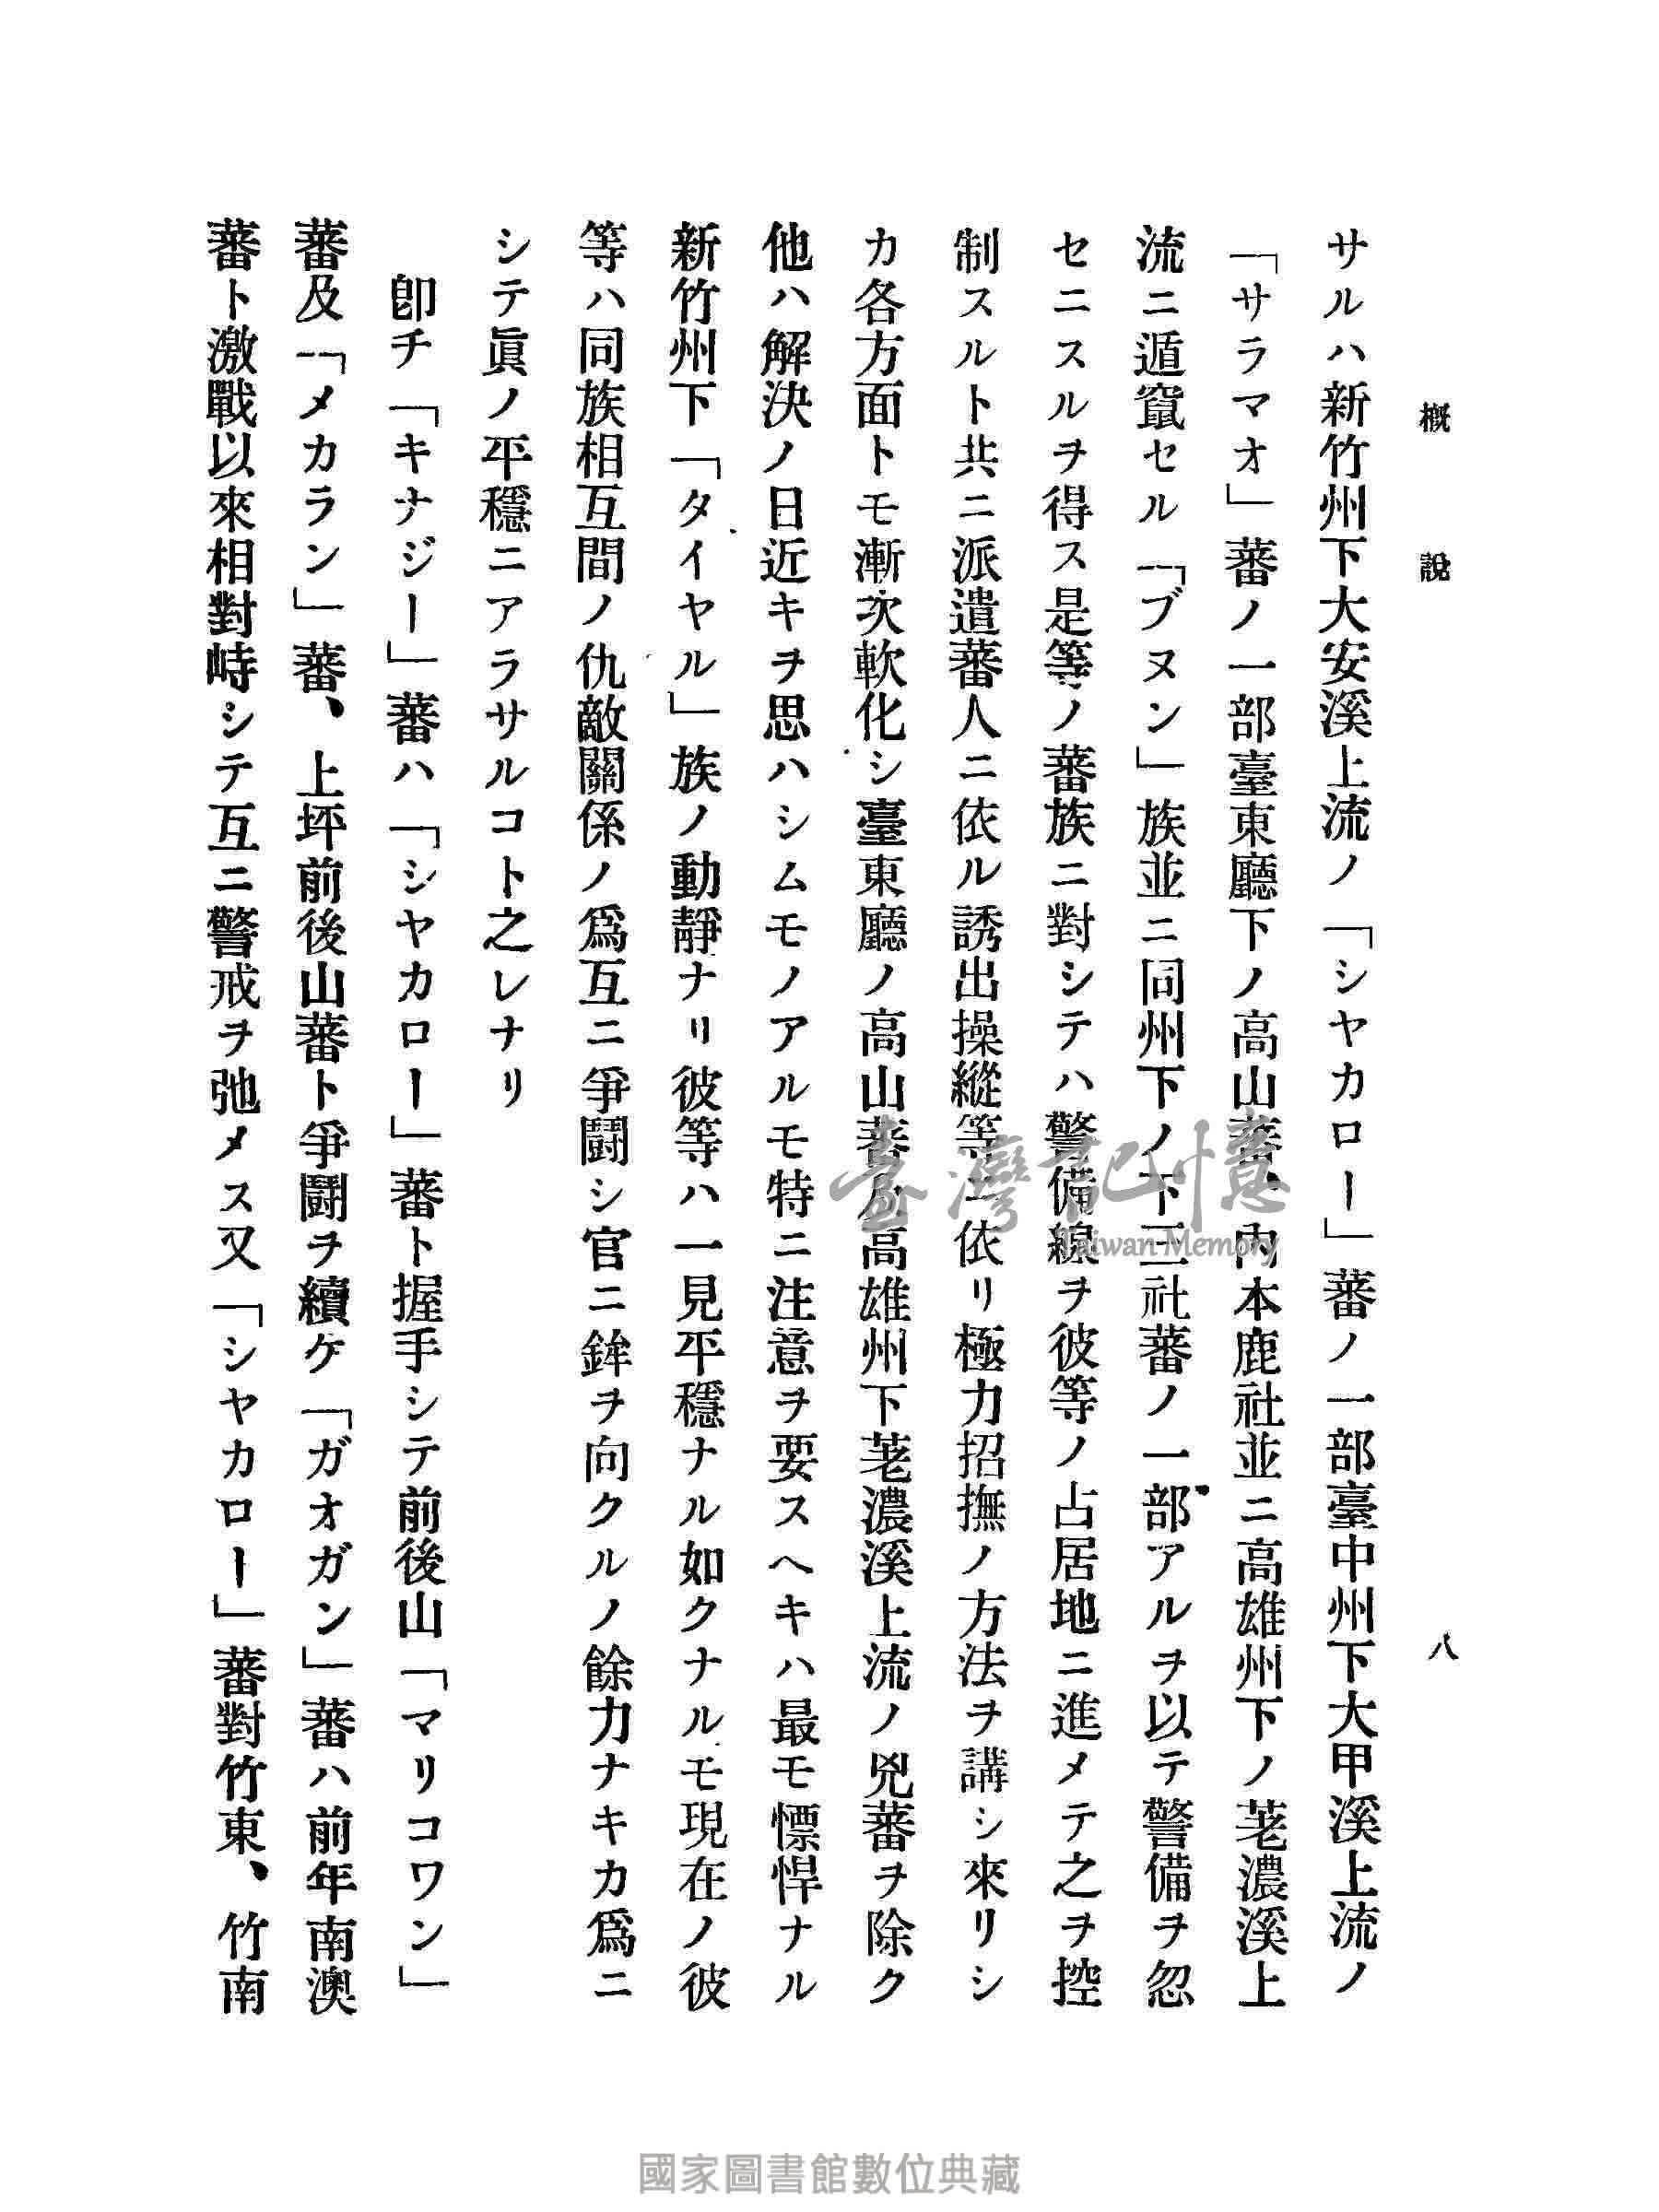 概說
八
サルハ新竹州下大安溪上流ノ「シヤカロー」蕃ノ一部臺中州下大甲溪上流ノ
「サラマオ」蕃ノ一部臺東廳下ノ高山蕃、內本鹿社並ニ高雄州下ノ荖濃溪上
流ニ遁竄セル「ブヌン」族並ニ同州下ノ下三社蕃ノ一部アルヲ以テ警備ヲ忽
セニスルヲ得ス是等ノ蕃族ニ對シテハ警備線ヲ彼等ノ占居地ニ進メテ之ヲ控
制スルト共ニ派遣蕃人ニ依ル誘出操縱等ニ依リ極力招撫ノ方法ヲ講シ來リシ
カ各方面トモ漸次軟化シ臺東廳ノ高山蕃及高雄州下荖濃溪上流ノ兇蕃ヲ除ク
他ハ解決ノ日近キヲ思ハシムモノアルモ特ニ注意ヲ要スヘキハ最モ慓悍ナル
新竹州下「タイヤル」族ノ動靜ナリ彼等ハ一見平穩ナル如クナルモ現在ノ彼
等ハ同族相互間ノ仇敵關係ノ爲互ニ爭鬪シ官ニ鉾ヲ向クルノ餘力ナキカ爲ニ
シテ眞ノ平穩ニアラサルコト之レナリ
卽チ「キナジー」蕃ハ「シヤカロー」蕃ト握手シテ前後山「マリコワン」
蕃及「メカラン」蕃、上坪前後山蕃ト爭鬪ヲ續ケ「ガオガン」蕃ハ前年南澳
蕃ト激戰以來相對峙シテ互ニ警戒ヲ弛メス又「シヤカロー」蕃對竹東、竹南
臺灣記憶
Taiwan Memory
國家圖書館數位典藏